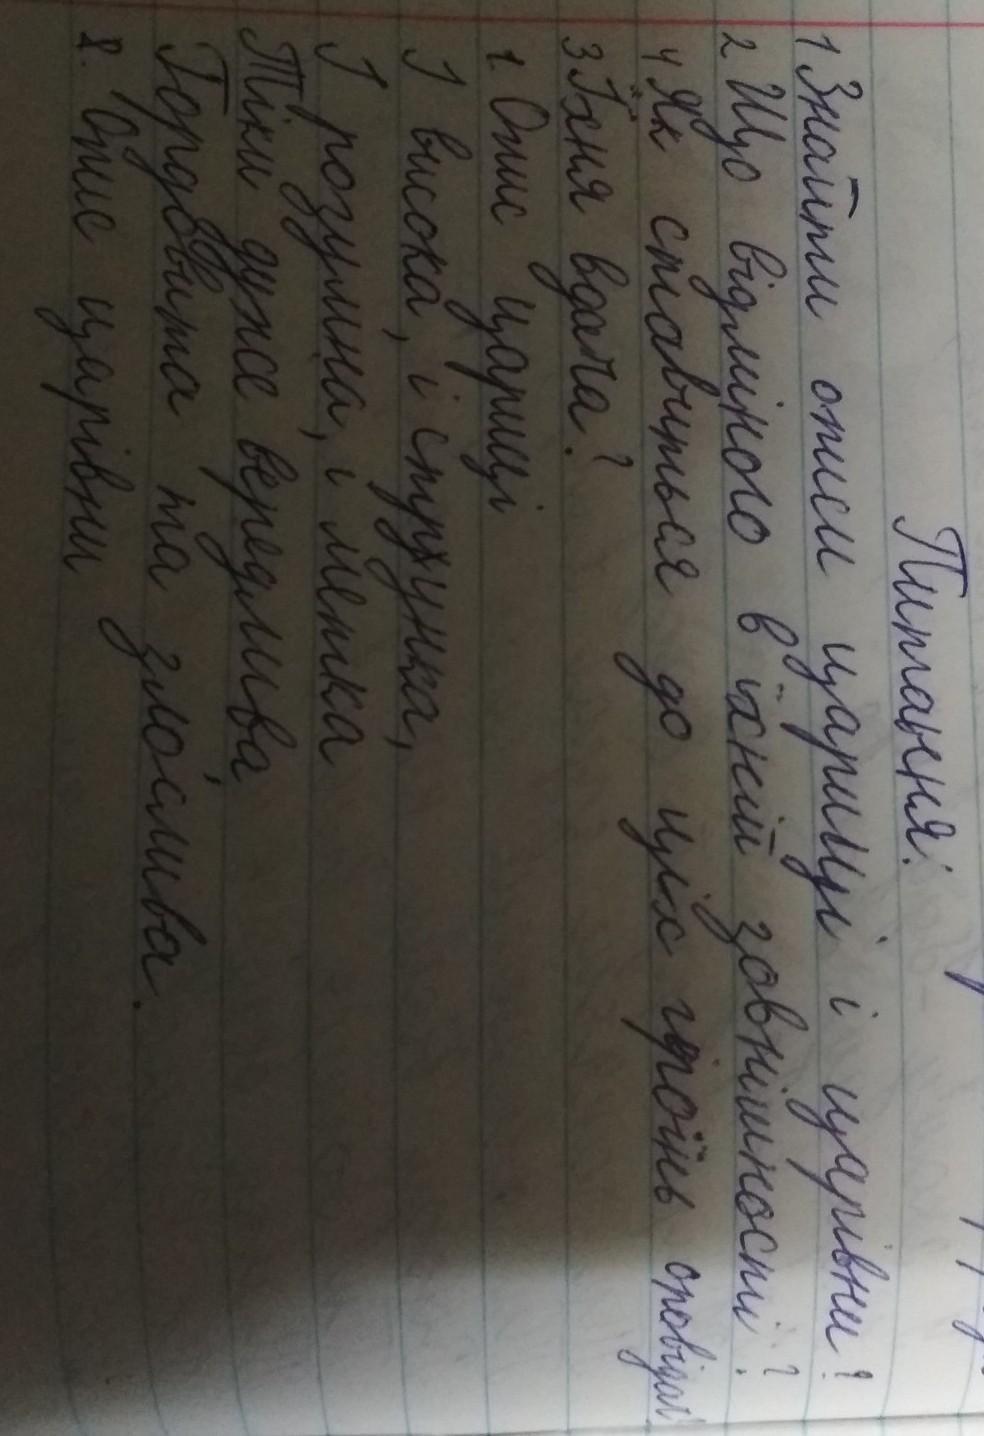 Питання:
1 Знайти описи цариці і царівни?
2 Що відмінного в їхній зовнішності?
4 Як ставиться до цих героїнь оповідач
3 Їхня вдача?
1. Опис цариці
І висока, і струнка,
І розумна, і метка
Тіки дуже вередлива
Гордовита та злослива.
2. Опис царівни